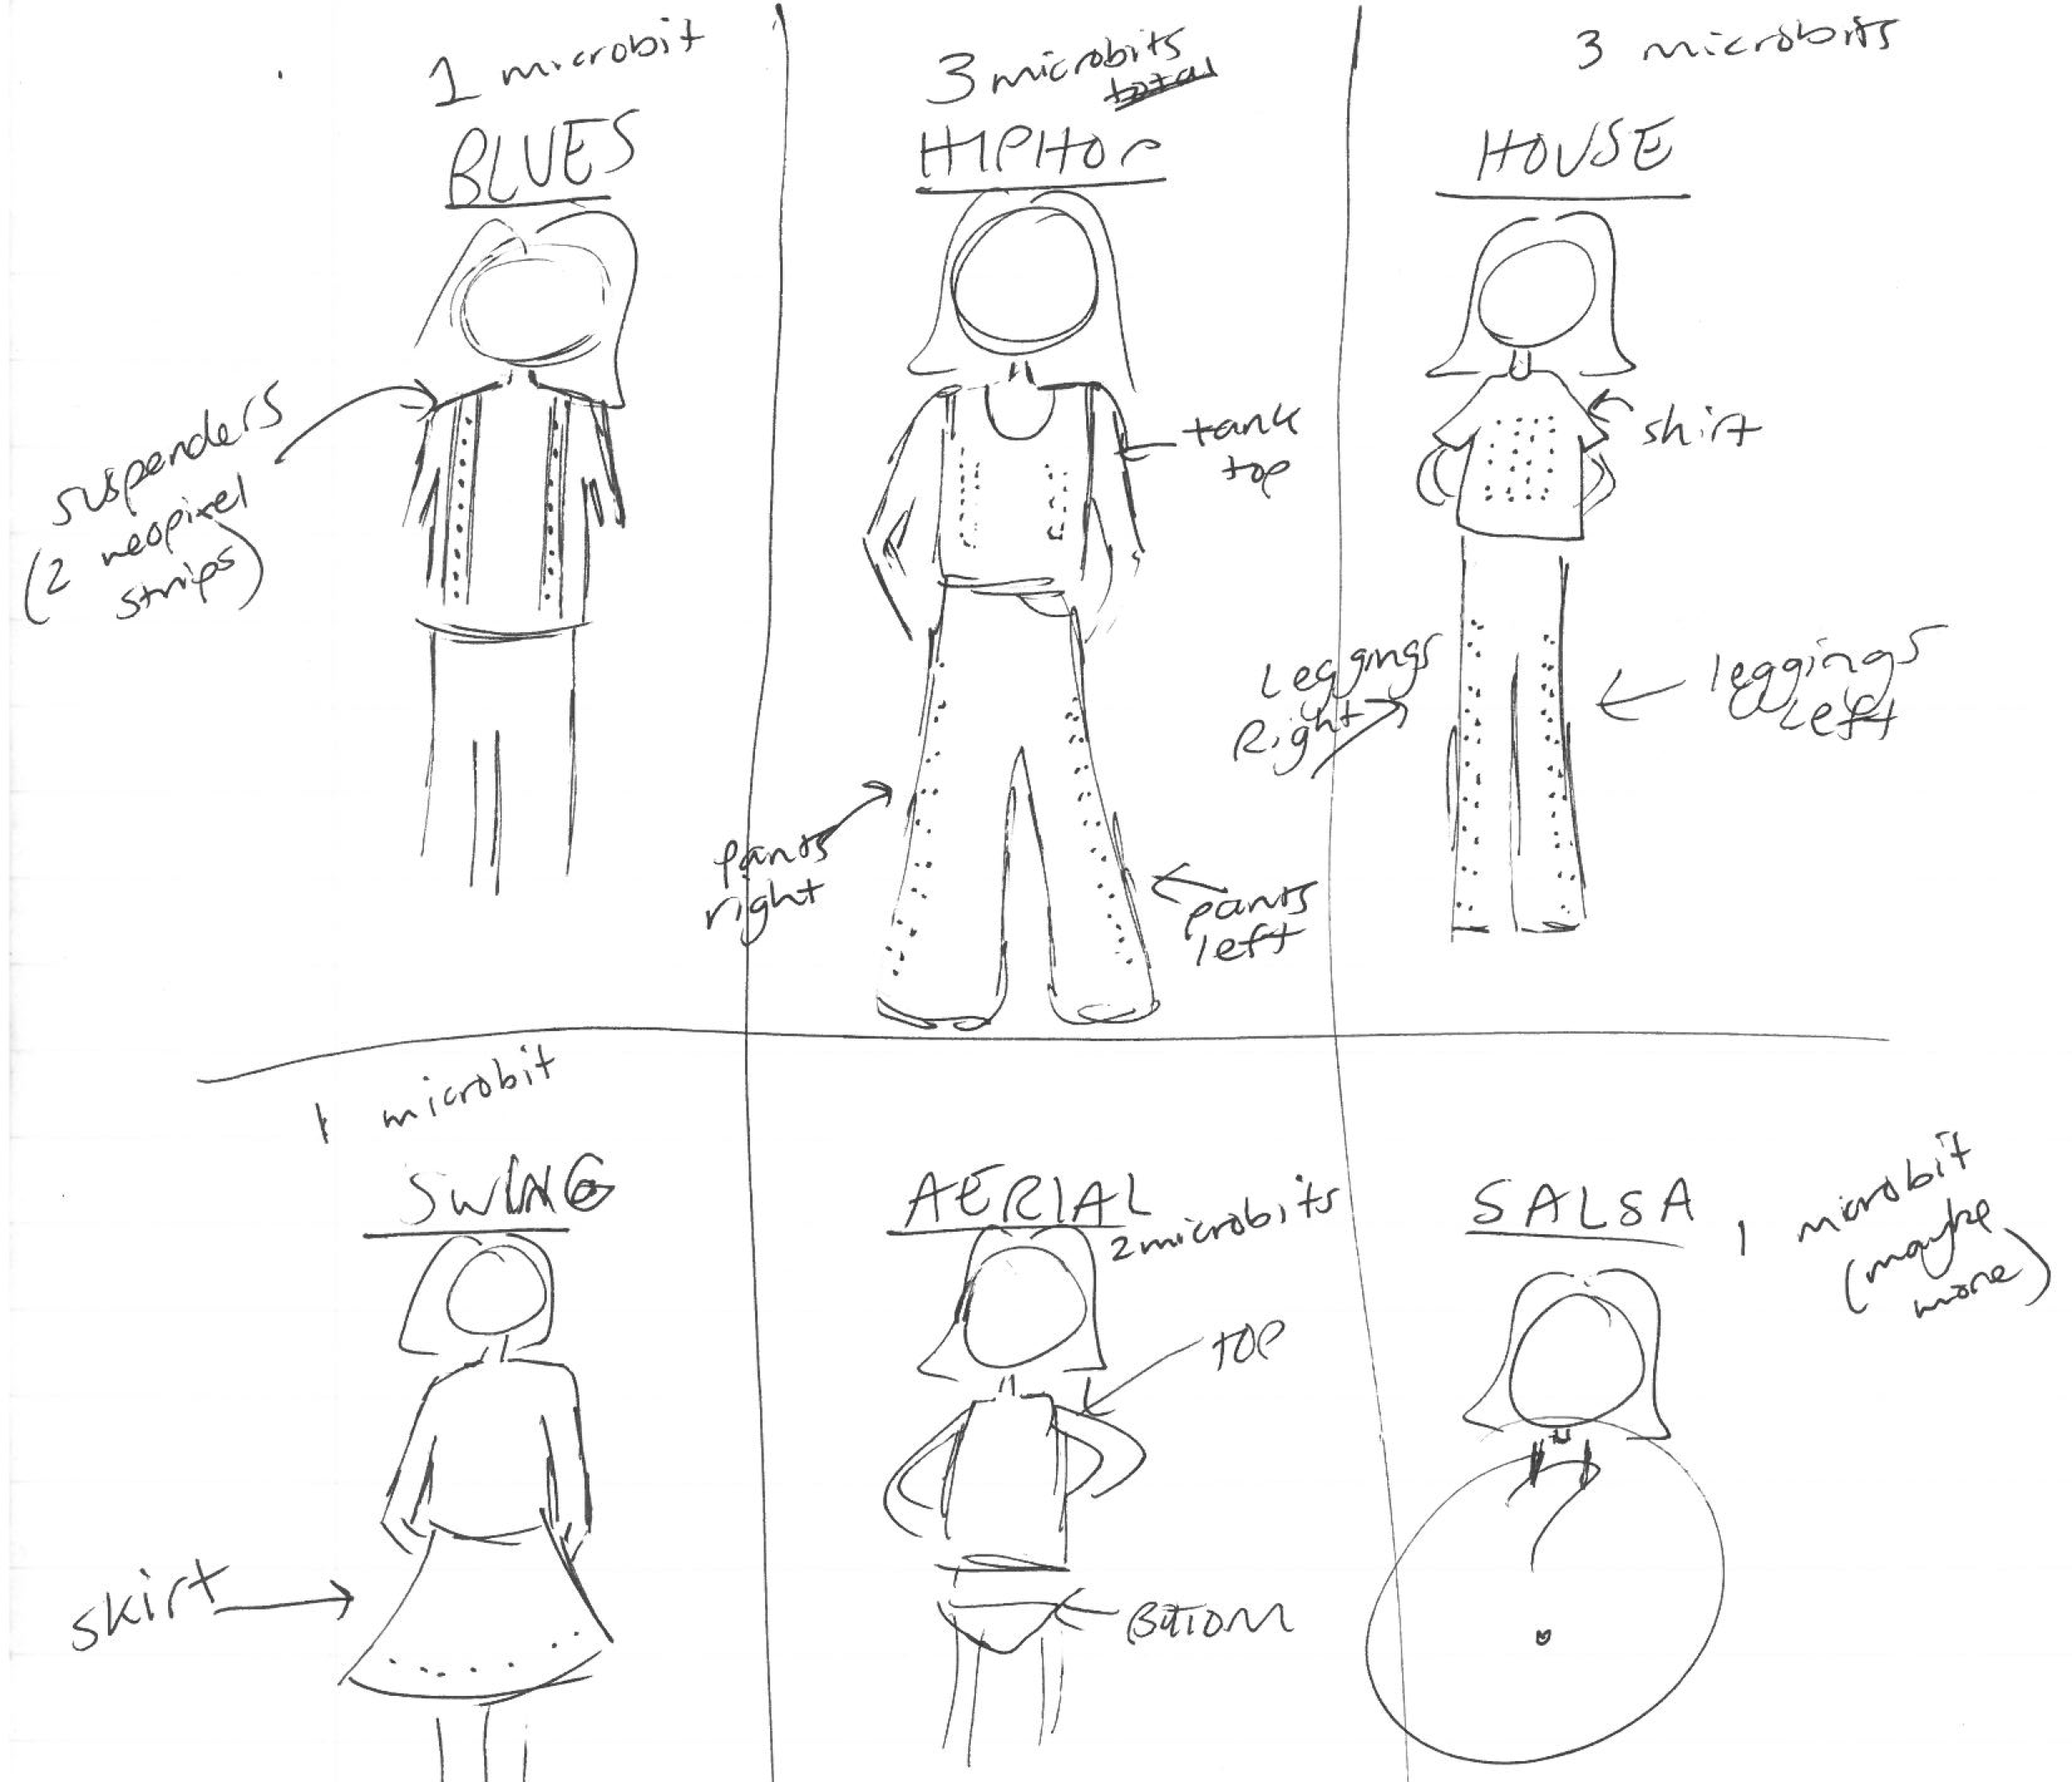 1 microbit
BLUES
suspenders
(2 neopixel
strips)
3 microbits
total
HIPHOP
tank
top
pants
right
pants
left
3 microbits
HOUSE
shirt
Leggings
Right
leggings
Left
1 microbit
SWING
skirt
AERIAL
2 microbits
TOP
BOTTOM
SALSA
1 microbit
(maybe
more)
?